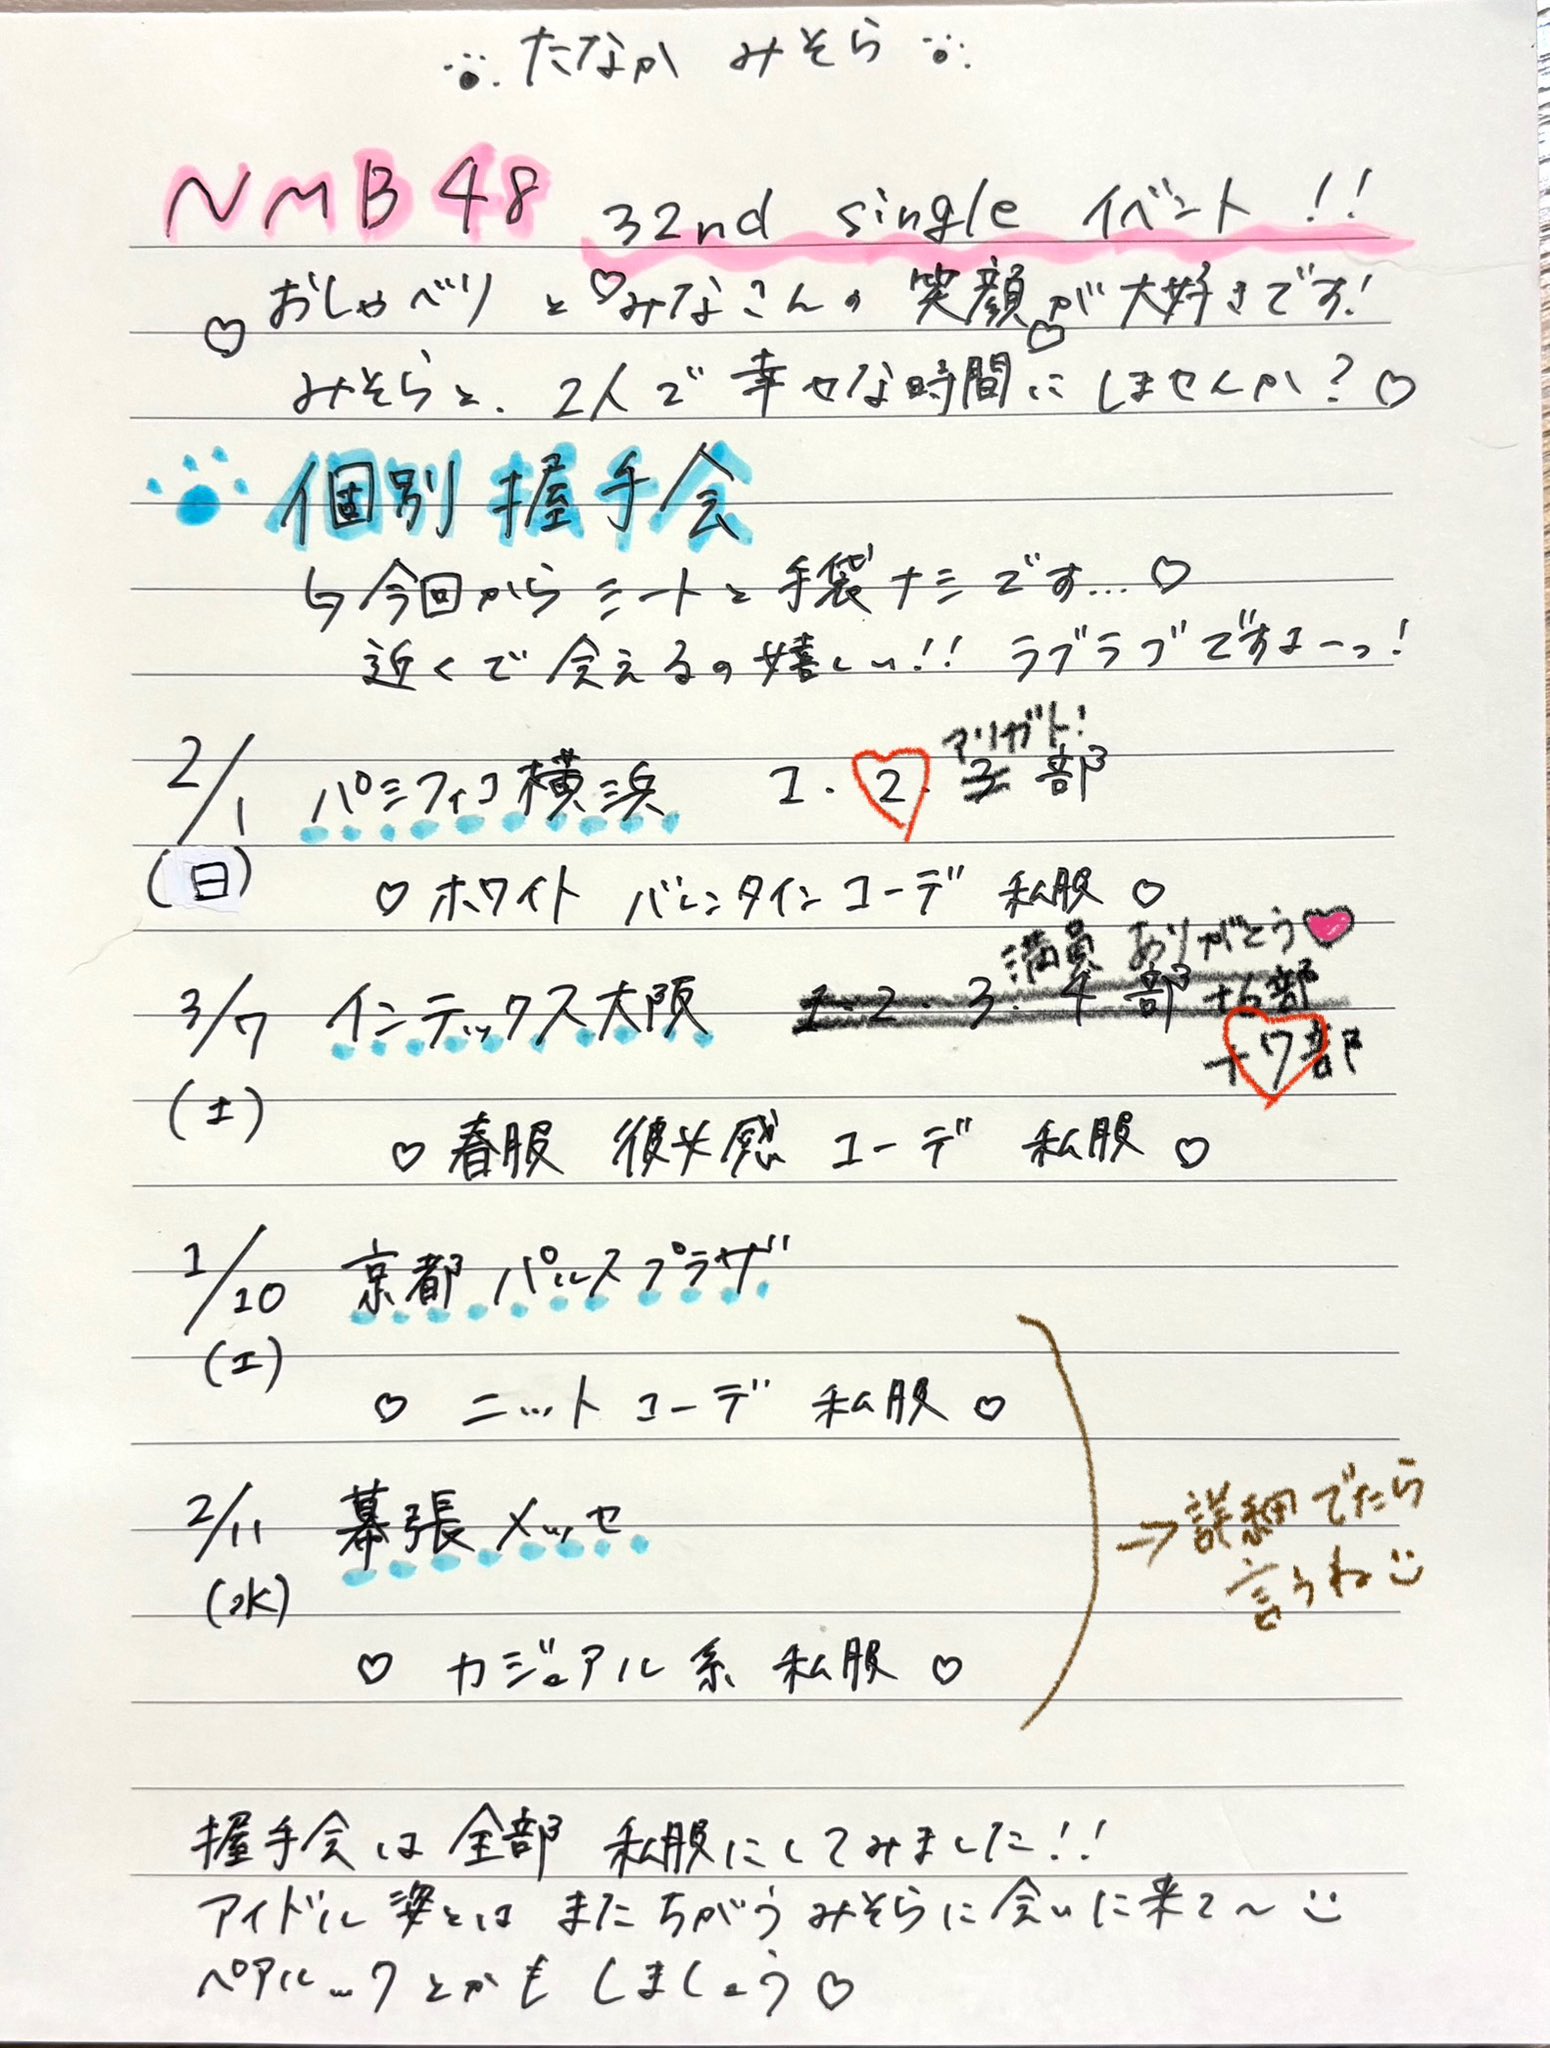 たなか みそら
NMB48 32nd single イベント!!
おしゃべりと♡みなさんの笑顔が大好きです!
♡みそらと、2人で幸せな時間にしませんか?♡
個別握手会
↳今回からシートと手袋ナシです…♡
近くで会えるの嬉しい!! ラブラブですよーっ!
アリガト!
2/1 パシフィコ横浜 1・2・3部
(日) ♡ホワイト バレンタインコーデ 私服♡
満員 ありがとう♡
3/7 インテックス大阪 1・2・3・4部 +6部
+7部
(土)
♡春服 彼女感 コーデ 私服♡
1/10 京都 パルスプラザ
(土)
♡ニットコーデ 私服♡
2/11 幕張メッセ
→詳細でたら
(水) 言うね
♡カジュアル系 私服♡
握手会は全部 私服にしてみました!!
アイドル姿とは またちがうみそらに会いに来て〜
ペアルックとかも しましょう♡